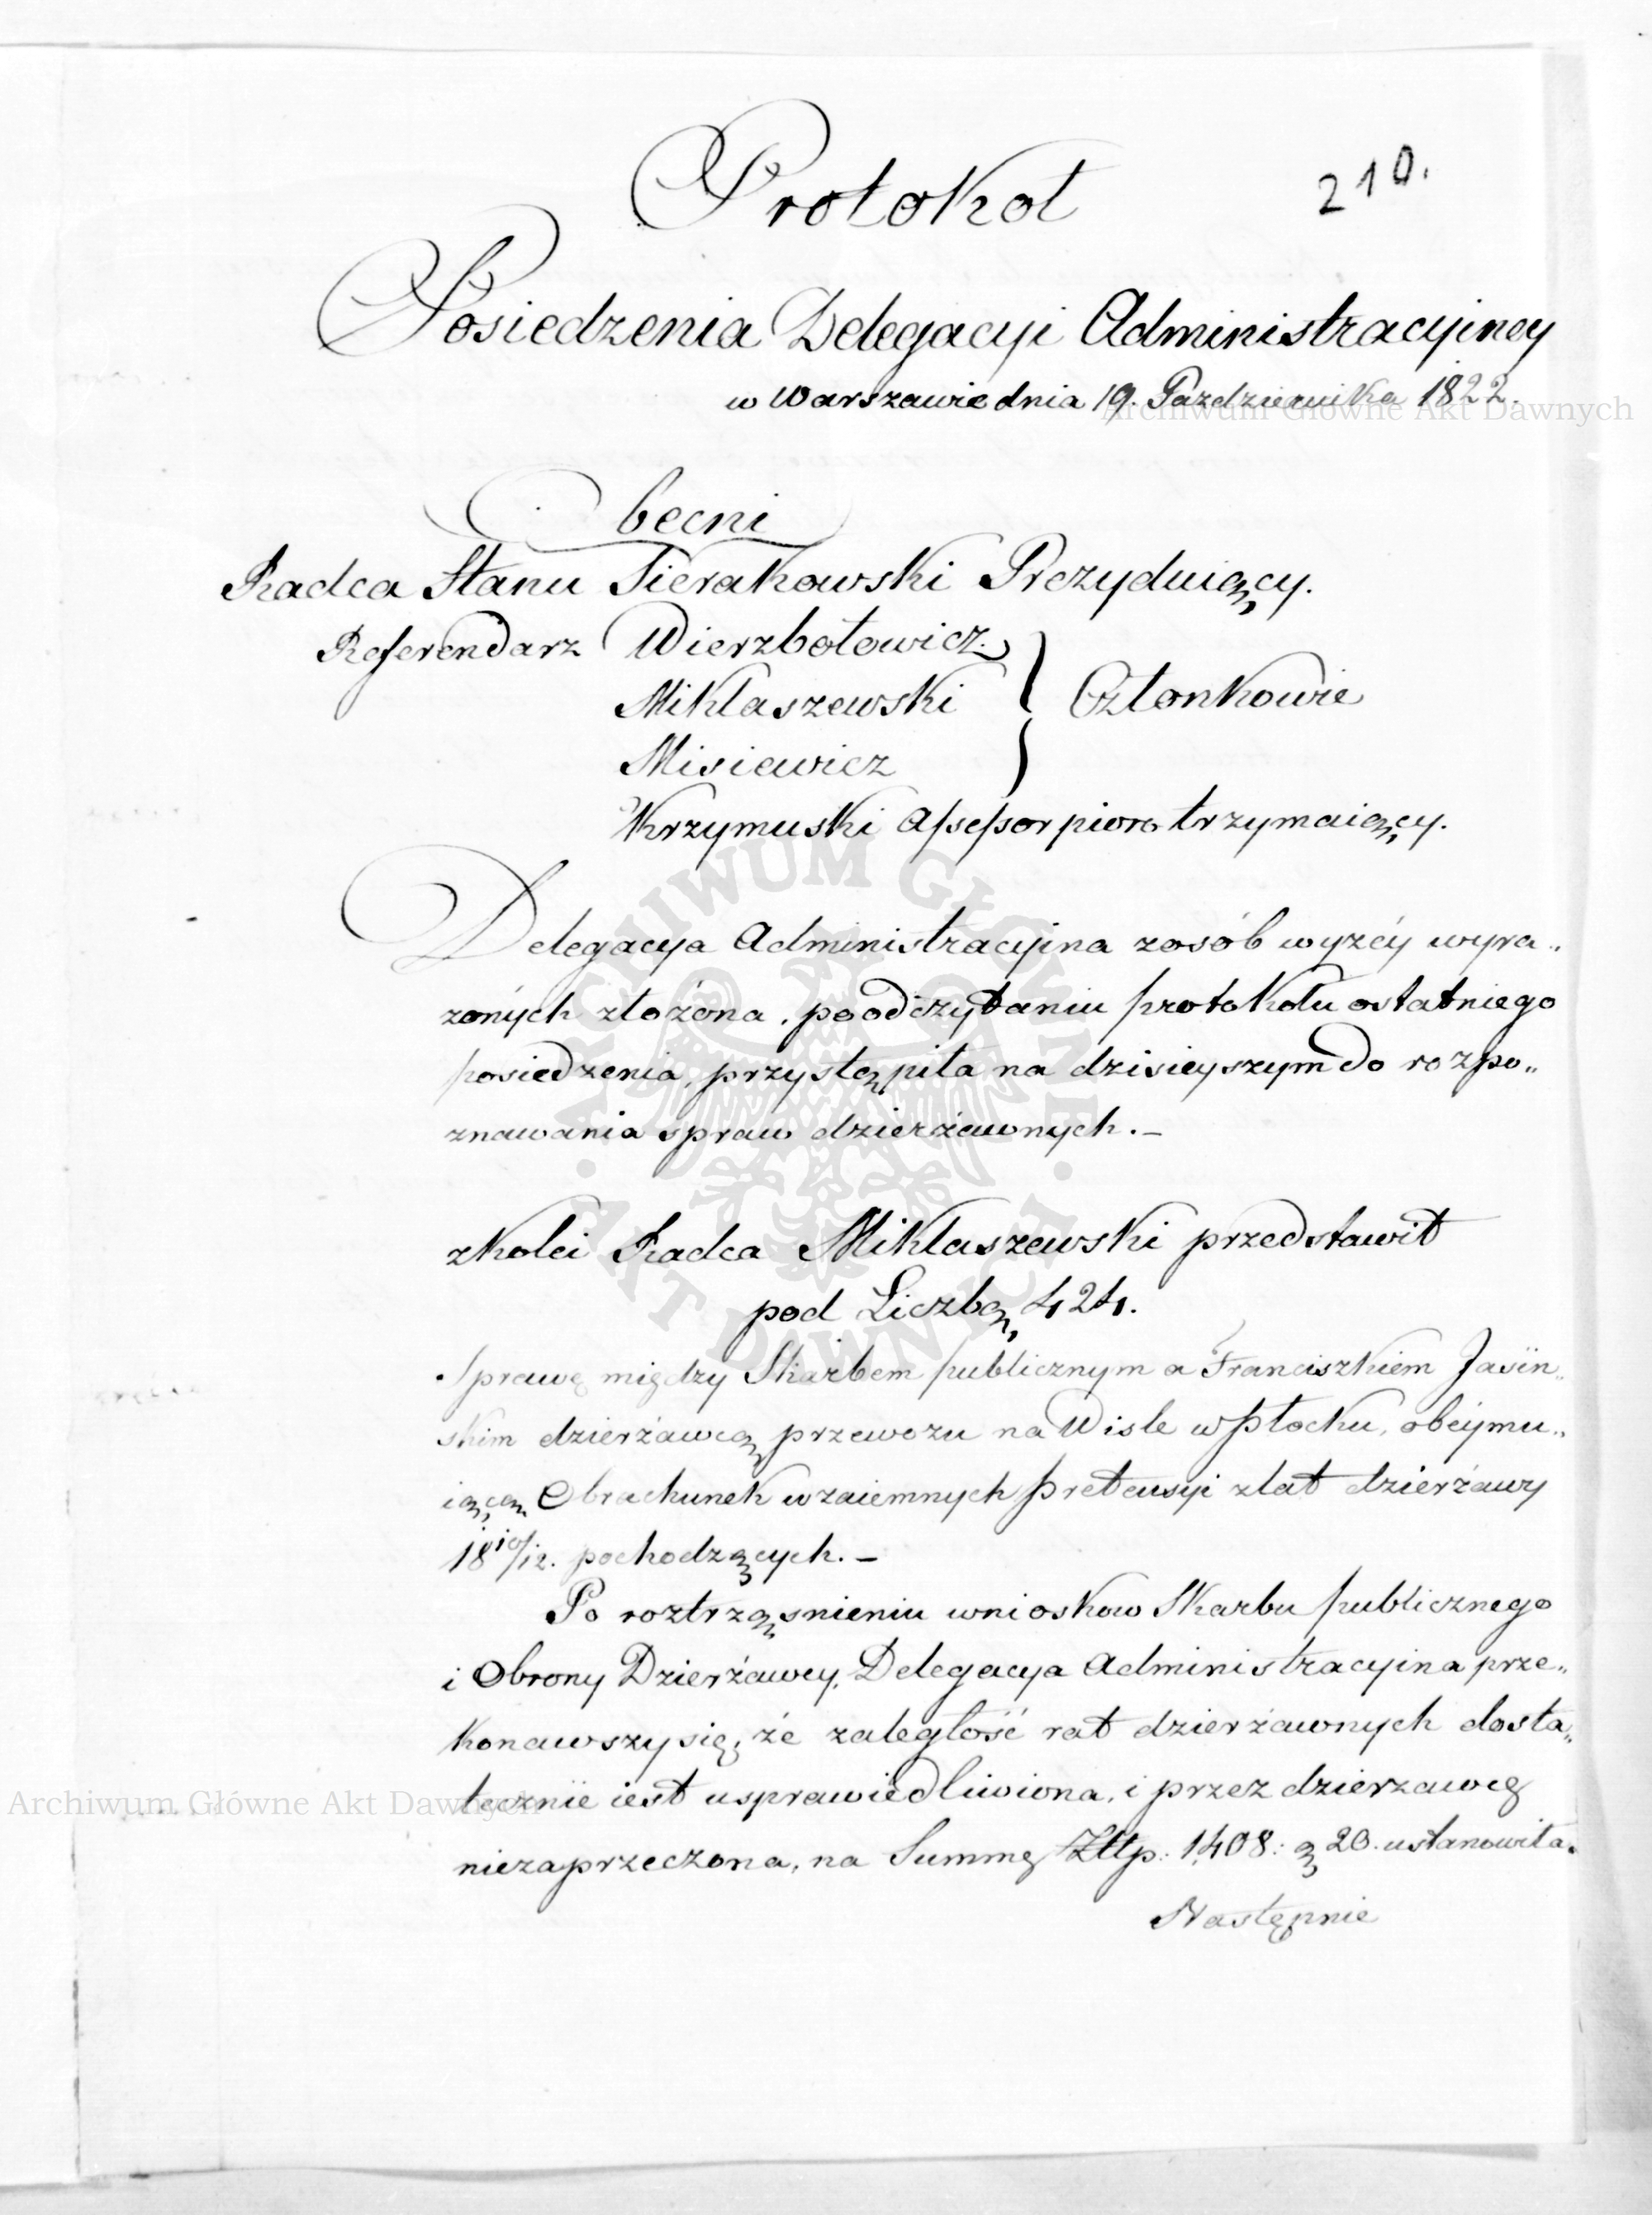 210.
Protokoł
Posiedzenia Delegacyi Administracyiney
w Warszawie dnia 19. Pazdziernika 1822.
Archiwum Główne Akt Dawnych
Obecni
Radca Stanu Sierakowski Prezyduiący.
Referendarz Wierzbołowicz.
Mikłaszewski } Członkowie
Misiewicz
Krzymuski Assessor pioro trzymaiący.
Delegacya Administracyina z osób wyżéy wyra„
żonych złożona, po odczytaniu protokołu ostatniego
posiedzenia, przystąpiła na dzisieyszym do rozpo„
znawania spraw dzierżawnych. –
z kolei Radca Mikłaszewski przedstawił
pod Liczbą 424.
Sprawę między Skarbem publicznym a Franciszkiem Jasiń„
skim dzierżawcą przewozu na Wisle w Płocku, obéymu„
iącą Obrachunek wzaiemnych pretensyi z lat dzierżawy
18 10/12. pochodzących. –
Po roztrząśnieniu wnioskow Skarbu publicznego
i Obrony Dzierżawcy, Delegacya Administracyina prze„
konawszy się, że zaległość rat dzierżawnych dosta„
tecznie iest usprawiedliwiona, i przez dzierzawcę
niezaprzeczona, na Summę Złłp: 1,408: g 20. ustanowiła.
Następnie
Archiwum Główne Akt Dawnych
ARCHIWUM GŁÓWNE · AKT DAWNYCH ·